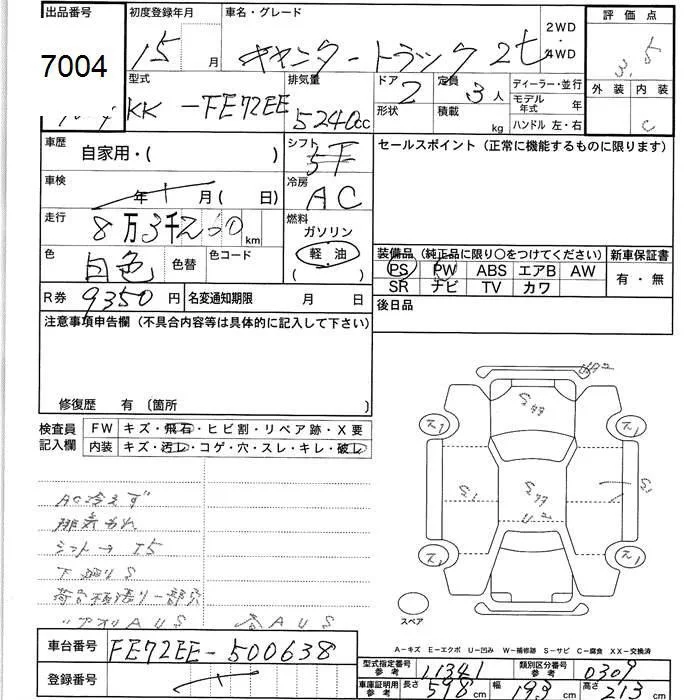 出品番号 初度登録年月 車名・グレード 2WD ・ 4WD 評価点
7004 15 月 キャンター トラック 2t 3.5
型式 排気量 ドア 定員 ディーラー・並行 外装 内装
KK-FE72EE 5240cc 2 3人 モデル年式 年 C
形状 積載 kg ハンドル 左・右
車歴 自家用・( ) シフト 5F セールスポイント(正常に機能するものに限ります)
車検 年 月( 日) 冷房 AC
走行 8万3千 km 燃料 ガソリン
軽油
( )
色 白色 色替 色コード 装備品(純正品に限り○をつけてください) 新車保証書
PS PW ABS エアB AW 有・無
SR ナビ TV カワ
R券 9350円 名変通知期限 月 日 後日品
注意事項申告欄(不具合内容等は具体的に記入して下さい)
修復歴 有 〔箇所 〕
検査員記入欄 FW キズ・飛石・ヒビ割・リペア跡・X要
内装 キズ・汚レ・コゲ・穴・スレ・キレ・破レ
AC冷えず
排気もれ
シフト→I5
下廻りS
荷台 一部
アオリAUS AUS
スペア
A-キズ E-エクボ U-凹み W-補修跡 S-サビ C-腐食 XX-交換済
車台番号 FE72EE-500638
登録番号
型式指定番号 参考 11341 類別区分番号 参考 0309
車庫証明用 参考 長さ 598cm 幅 193cm 高さ 213cm